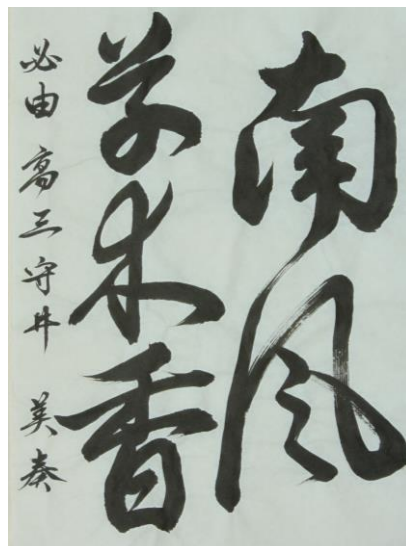 南風
草木香
必由 高三 守井 美奏